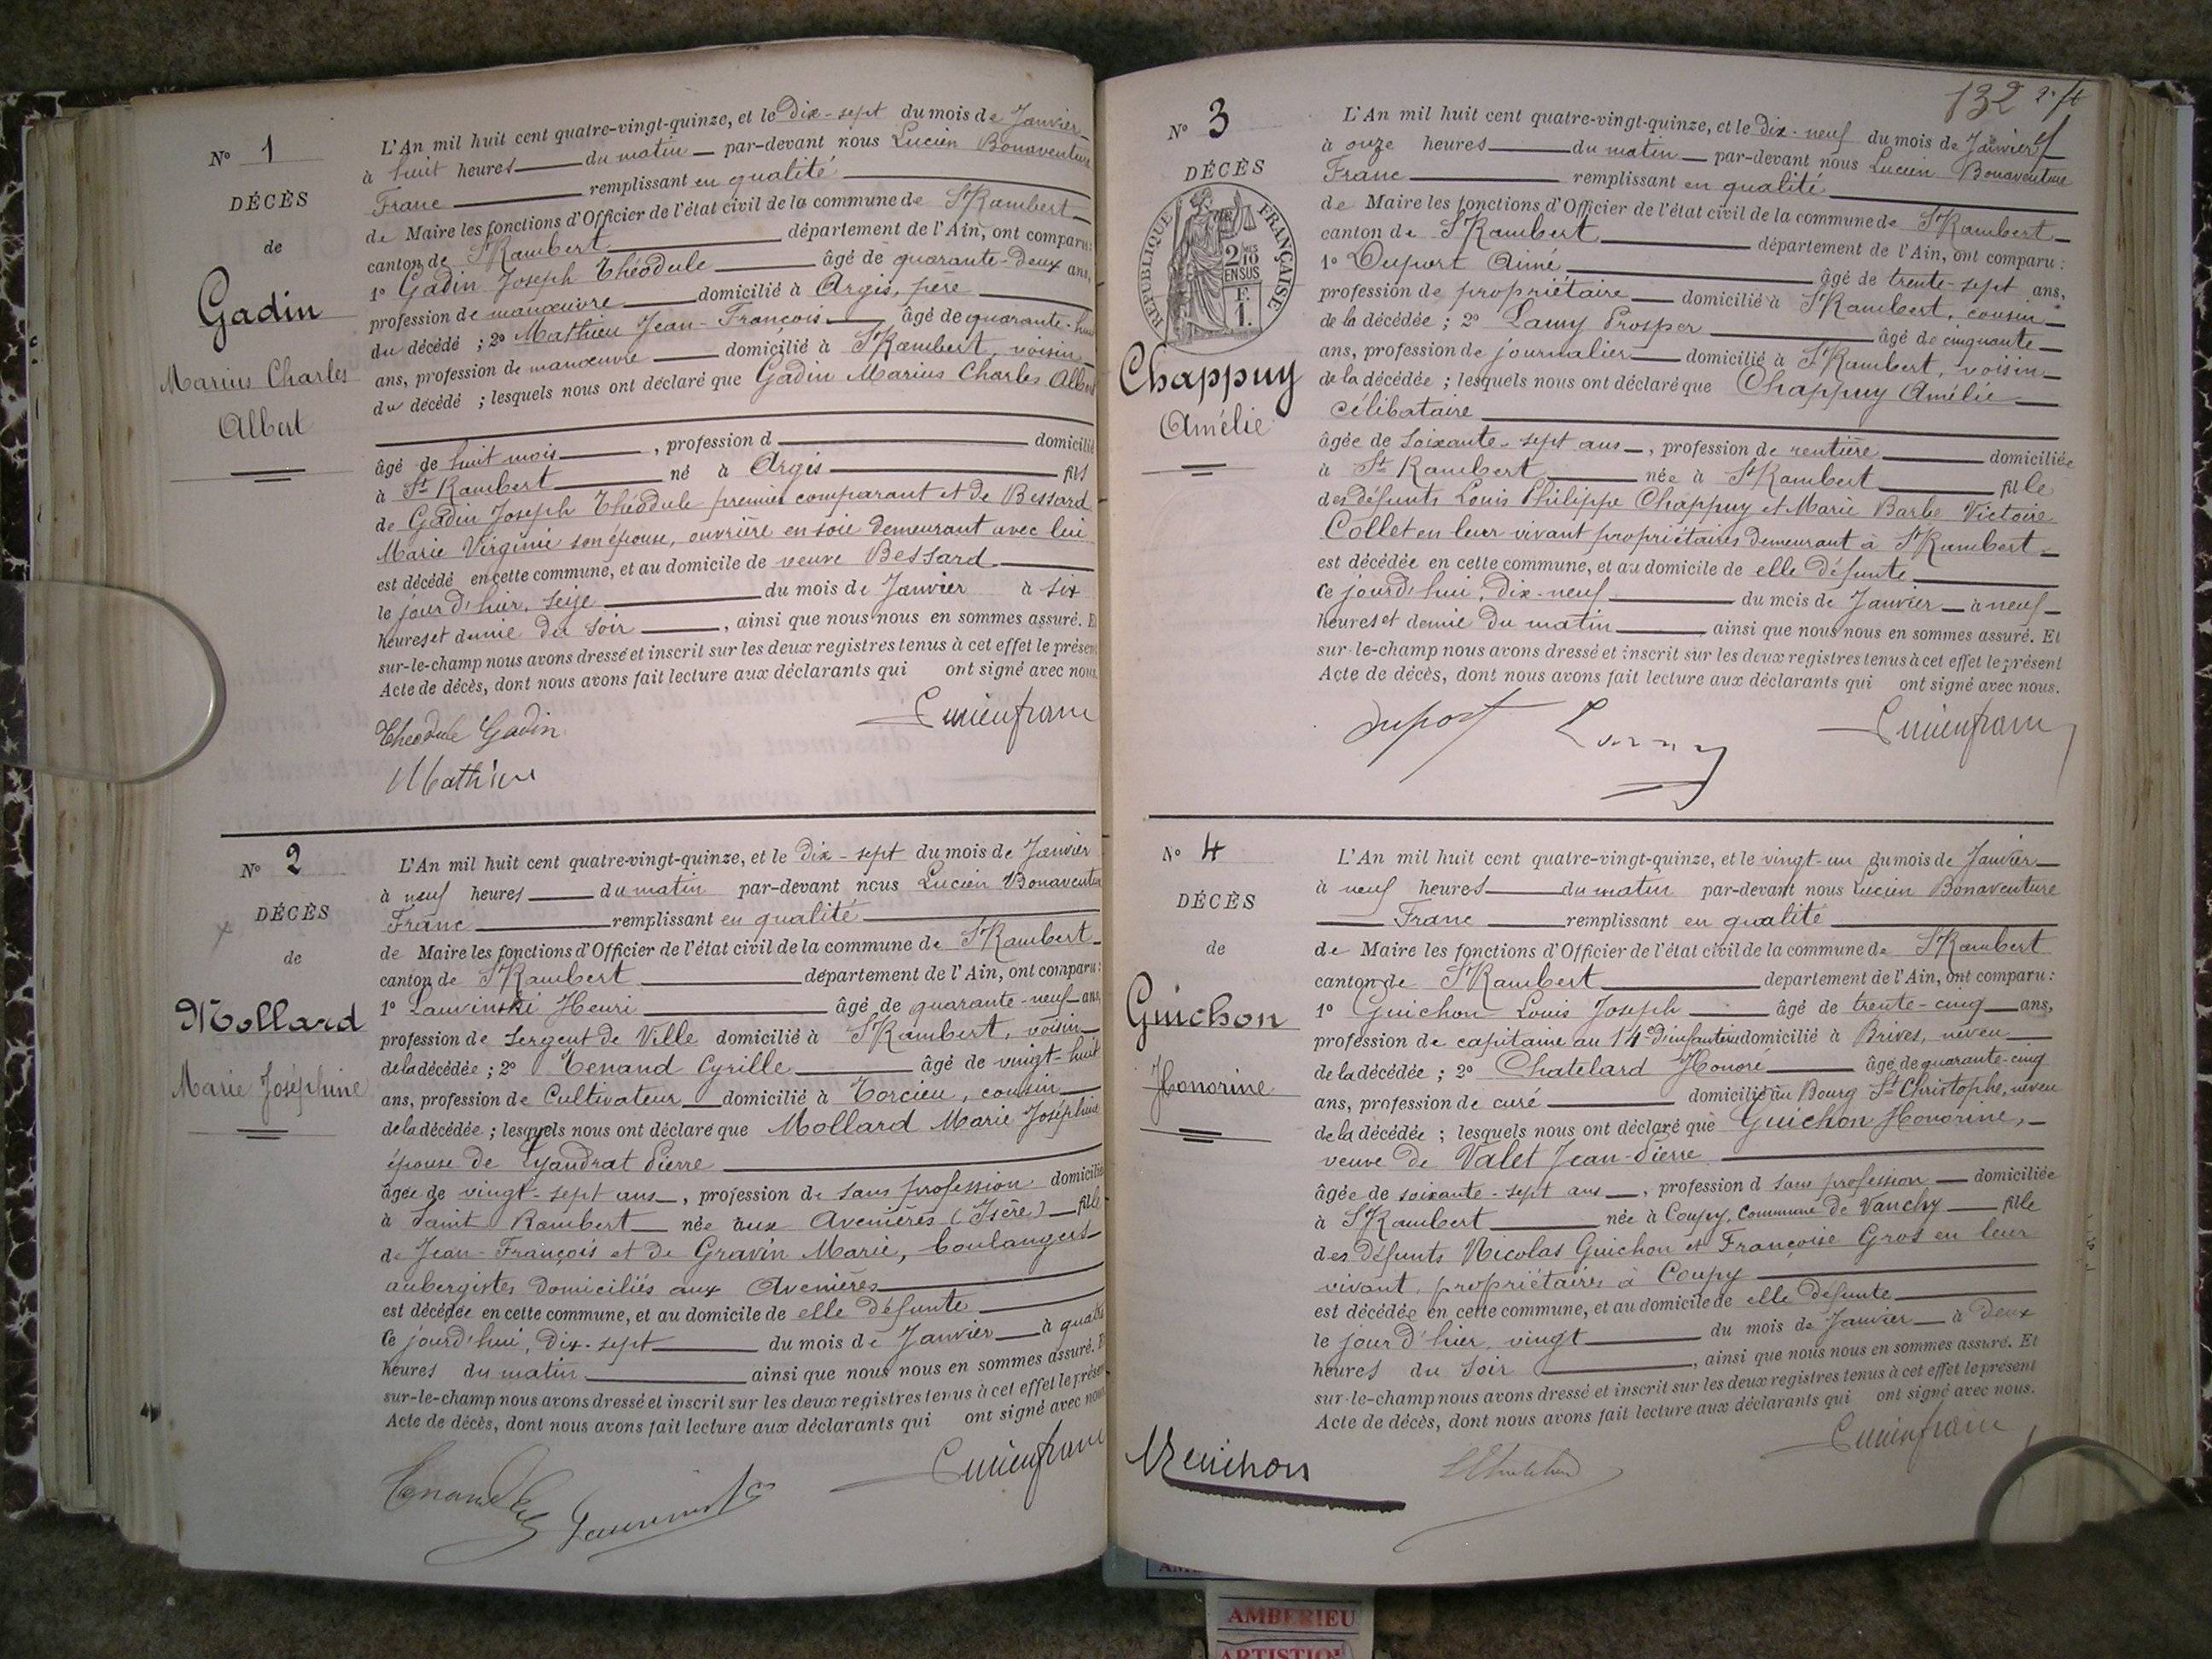 N° 1
DÉCÈS
de
Gadin
Marius Charles
Albert
L'An mil huit cent quatre-vingt-quinze, et le Dix-sept du mois de Janvier
à huit heures du matin par-devant nous Lucien Bonaventure
Franc remplissant en qualité
de Maire les fonctions d'Officier de l'état civil de la commune de St Rambert
canton de St Rambert département de l'Ain, ont comparu:
1° Gadin Joseph Théodule âgé de quarante-deux ans,
profession de manœuvre domicilié à Argis, père
du décédé ; 2° Mathieu Jean-François âgé de quarante-huit
ans, profession de manœuvre domicilié à St Rambert, voisin
du décédé ; lesquels nous ont déclaré que Gadin Marius Charles Albert
âgé de huit mois, profession d domicilié
à St Rambert né à Argis fils
de Gadin Joseph Théodule premier comparant et de Bessard
Marie Virginie son épouse, ouvrière en soie demeurant avec lui
est décédé en cette commune, et au domicile de veuve Bessard
le jour d'hier, seize du mois de Janvier à six
heures et demie du soir, ainsi que nous nous en sommes assuré. Et
sur-le-champ nous avons dressé et inscrit sur les deux registres tenus à cet effet le présent
Acte de décès, dont nous avons fait lecture aux déclarants qui ont signé avec nous.
Théodule Gadin
Lucien franc
Mathieu
N° 2
DÉCÈS
de
Mollard
Marie Joséphine
L'An mil huit cent quatre-vingt-quinze, et le Dix-sept du mois de Janvier
à neuf heures du matin par-devant nous Lucien Bonaventure
Franc remplissant en qualité
de Maire les fonctions d'Officier de l'état civil de la commune de St Rambert
canton de St Rambert département de l'Ain, ont comparu:
1° Lauvinski Henri âgé de quarante-neuf ans,
profession de Sergent de Ville domicilié à St Rambert, voisin
de la décédée ; 2° Tenand Cyrille âgé de vingt-huit
ans, profession de Cultivateur domicilié à Torcieu, cousin
de la décédée ; lesquels nous ont déclaré que Mollard Marie Joséphine
épouse de Lyaudrat Pierre
âgée de vingt-sept ans, profession de sans profession domiciliée
à Saint Rambert née aux Avenières (Isère) fille
de Jean-François et de Gravin Marie, boulangers
aubergistes domiciliés aux Avenières
est décédée en cette commune, et au domicile de elle défunte
Ce jourd'hui, Dix-sept du mois de Janvier à quatre
heures du matin ainsi que nous nous en sommes assuré. Et
sur-le-champ nous avons dressé et inscrit sur les deux registres tenus à cet effet le présent
Acte de décès, dont nous avons fait lecture aux déclarants qui ont signé avec nous.
Lucien franc
Tenand
132
N° 3
DÉCÈS
RÉPUBLIQUE FRANÇAISE
2/10
EN SUS
F.
1.
Chappuy
Amélie
L'An mil huit cent quatre-vingt-quinze, et le Dix-neuf du mois de Janvier
à onze heures du matin par-devant nous Lucien Bonaventure
Franc remplissant en qualité
de Maire les fonctions d'Officier de l'état civil de la commune de St Rambert
canton de St Rambert département de l'Ain, ont comparu :
1° Duport Aimé, âgé de trente-sept ans,
profession de propriétaire domicilié à St Rambert, cousin
de la décédée ; 2° Lamy Prosper âgé de cinquante
ans, profession de journalier domicilié à St Rambert, voisin
de la décédée ; lesquels nous ont déclaré que Chappuy Amélie
célibataire
âgée de soixante-sept ans, profession de rentière domiciliée
à St Rambert née à St Rambert fille
des défunts Louis Philippe Chappuy et Marie Barbe Victoire
Collet en leur vivant propriétaires demeurant à St Rambert
est décédée en cette commune, et au domicile de elle défunte
Ce jourd'hui, Dix-neuf du mois de Janvier à neuf
heures et demie du matin ainsi que nous nous en sommes assuré. Et
sur-le-champ nous avons dressé et inscrit sur les deux registres tenus à cet effet le présent
Acte de décès, dont nous avons fait lecture aux déclarants qui ont signé avec nous.
Duport Lamy Lucien franc
N° 4
DÉCÈS
de
Guichon
Honorine
L'An mil huit cent quatre-vingt-quinze, et le vingt-un du mois de Janvier
à neuf heures du matin par-devant nous Lucien Bonaventure
Franc remplissant en qualité
de Maire les fonctions d'Officier de l'état civil de la commune de St Rambert
canton de St Rambert département de l'Ain, ont comparu :
1° Guichon Louis Joseph âgé de trente-cinq ans,
profession de capitaine au 14e d'infanterie domicilié à Brives, neveu
de la décédée ; 2° Chatelard Honoré âgé de quarante-cinq
ans, profession de curé domicilié au Bourg St Christophe, neveu
de la décédée ; lesquels nous ont déclaré que Guichon Honorine,
veuve de Valet Jean-Pierre
âgée de soixante-sept ans, profession d sans profession domiciliée
à St Rambert née à Coupy, Commune de Vanchy fille
des défunts Nicolas Guichon et Françoise Gros en leur
vivant, propriétaires à Coupy
est décédée en cette commune, et au domicile de elle défunte
le jour d'hier, vingt du mois de Janvier à deux
heures du soir, ainsi que nous nous en sommes assuré. Et
sur-le-champ nous avons dressé et inscrit sur les deux registres tenus à cet effet le présent
Acte de décès, dont nous avons fait lecture aux déclarants qui ont signé avec nous.
Guichon
Lucien franc
AMBERIEU